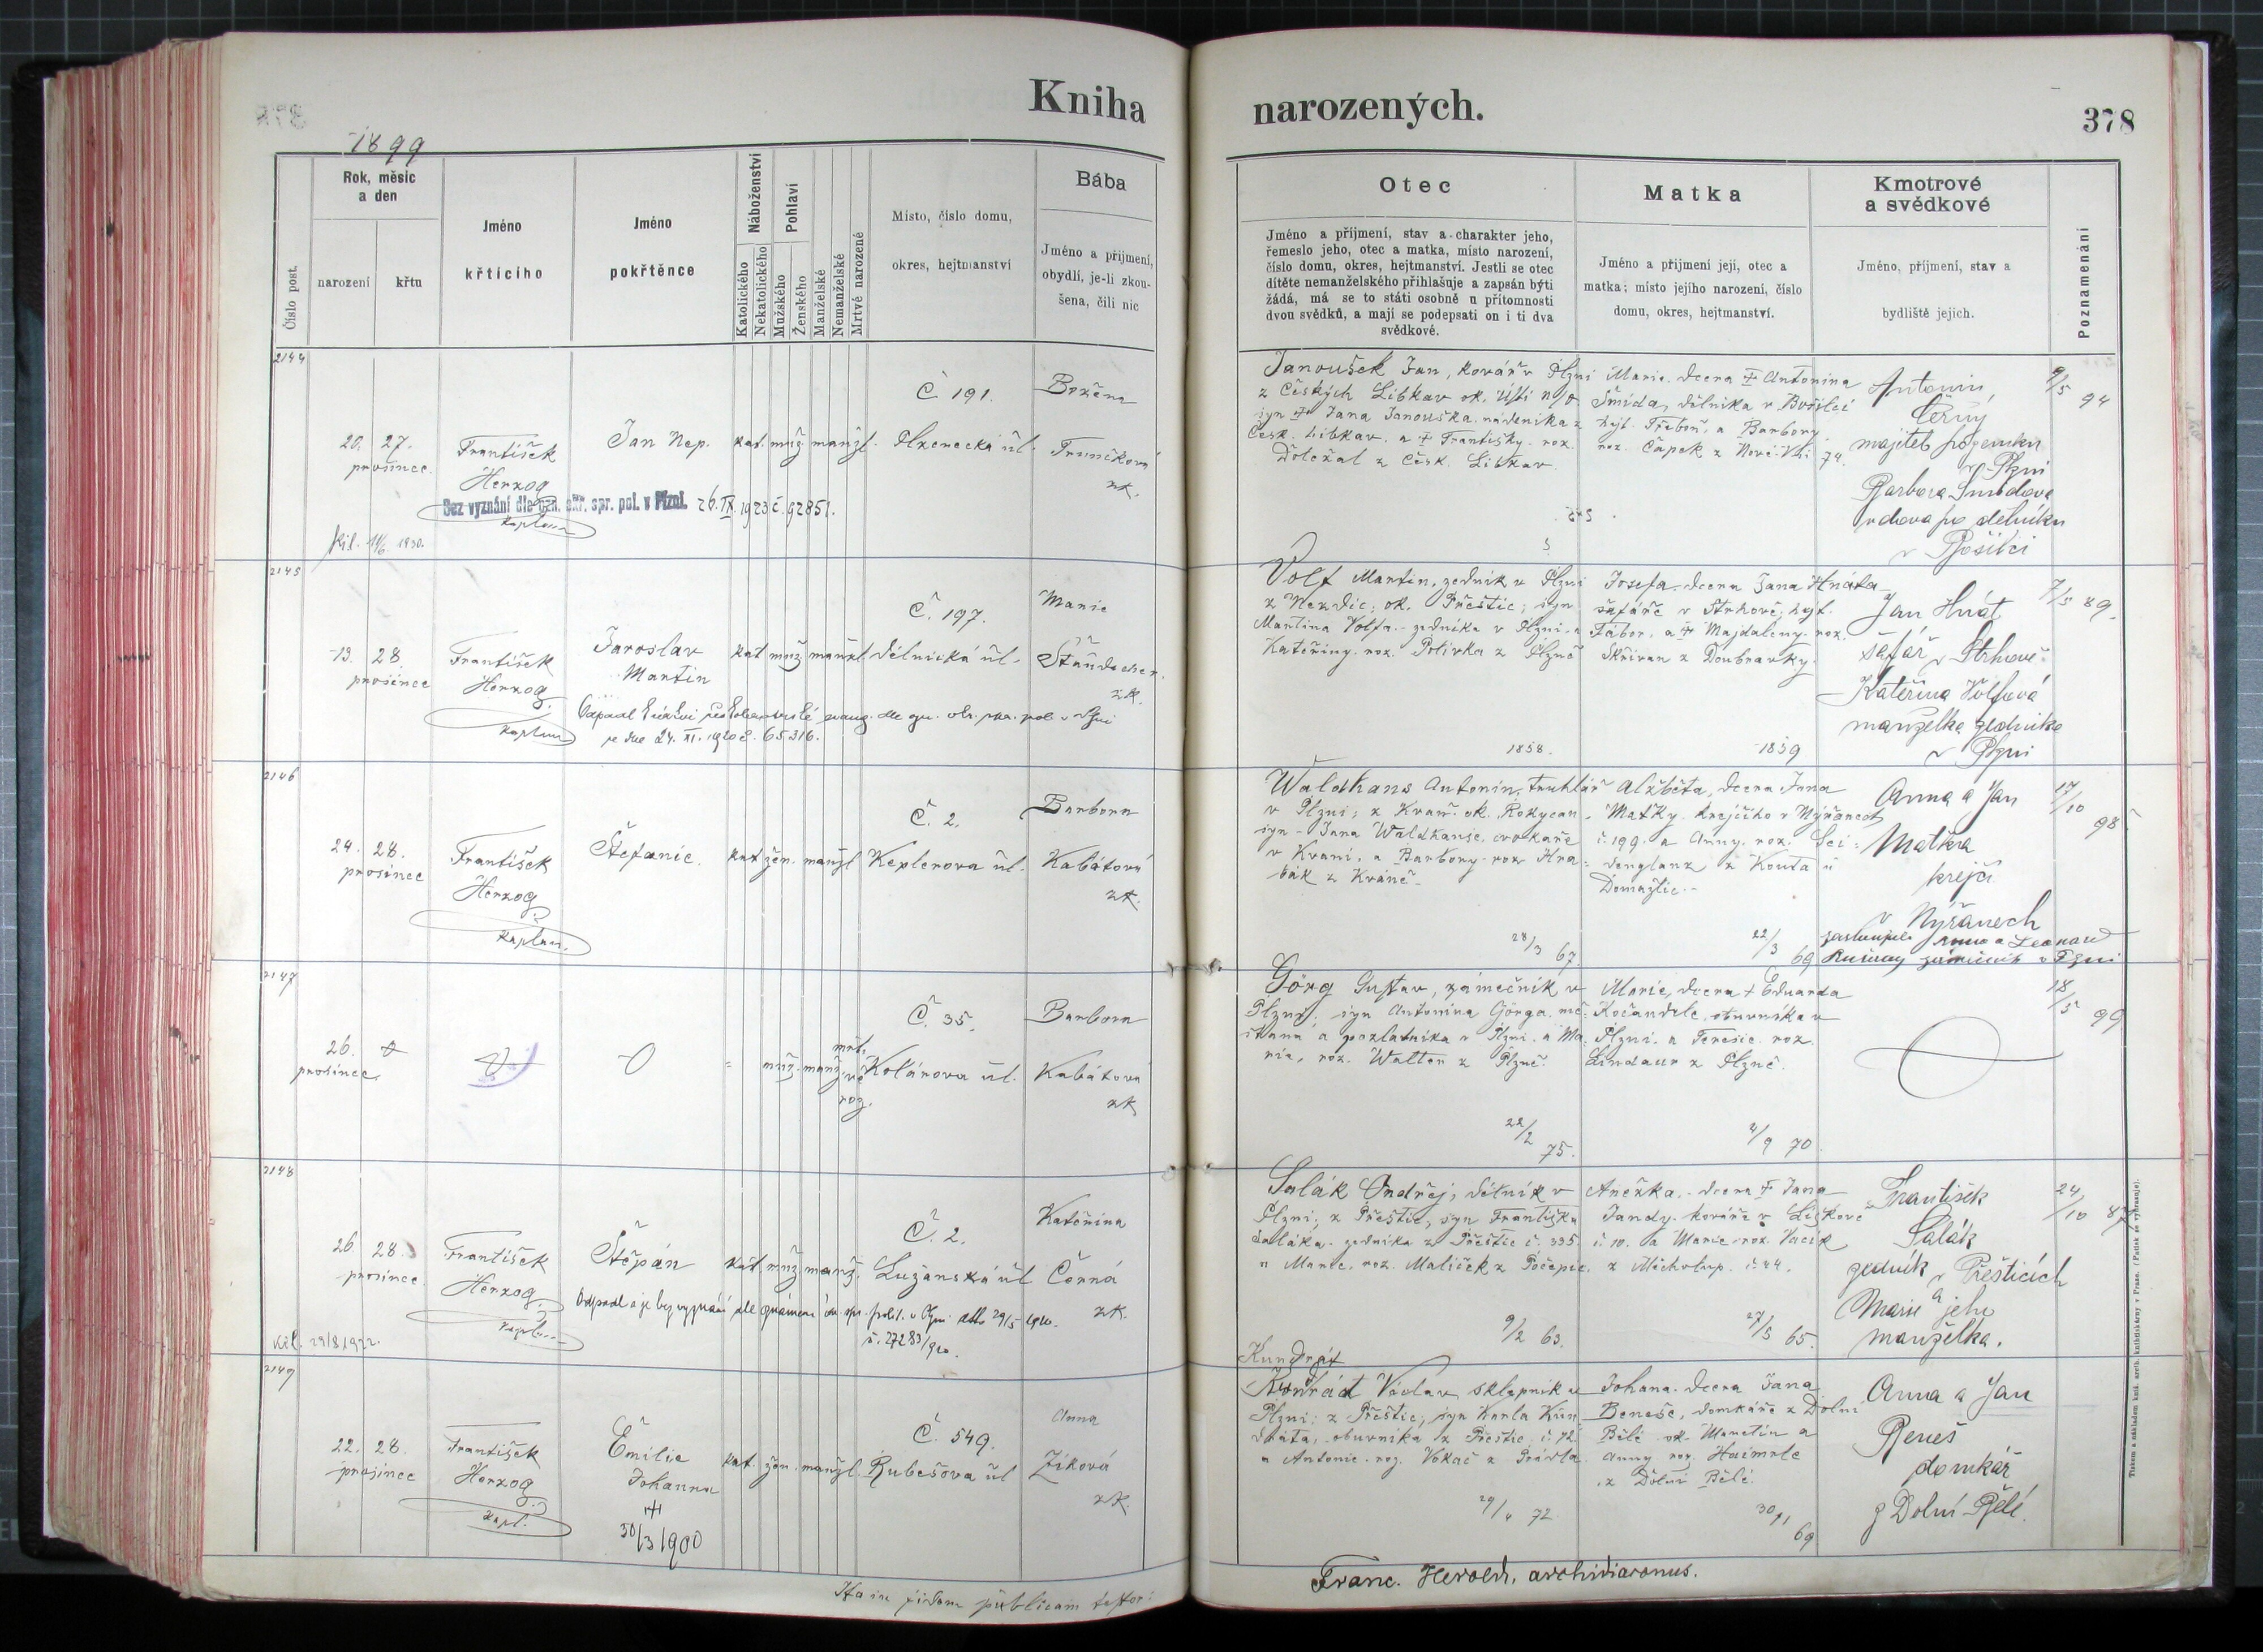 Kniha
narozených.
378
1899
Rok, měsíc
a den
Číslo post.
narození
křtu
Jméno
křtícího
Jméno
pokřtěnce
Náboženství
Katolického
Nekatolického
Pohlaví
Mužského
Ženského
Manželské
Nemanželské
Mrtvě narozené
Místo, číslo domu,
okres, hejtmanství
Bába
Jméno a příjmení,
obydlí, je-li zkou-
šena, čili nic
Otec
Jméno a příjmení, stav a charakter jeho,
řemeslo jeho, otec a matka, místo narození,
číslo domu, okres, hejtmanství. Jestli se otec
dítěte nemanželského přihlašuje a zapsán býti
žádá, má se to státi osobně u přítomnosti
dvou svědků, a mají se podepsati on i ti dva
svědkové.
Matka
Jméno a příjmení její, otec a
matka; místo jejího narození, číslo
domu, okres, hejtmanství.
Kmotrové
a svědkové
Jméno, příjmení, stav a
bydliště jejich.
Poznamenání
2144
20. 27.
prosince.
František
Herzog
kaplan
Jan Nep.
kat. muž. manžl.
Č 191.
Plzenecká ul.
Božena
Trunčková
zk.
Bez vyznání dle ozn. okr. spr. pol. v Plzni. 26.IX.1923 č. 92851.
bil. 11/6 1930.
Janoušek Jan, kovář v Plzni
z Českých Libkav ok. Ústí n/O
syn + Jana Janouška nádeníka z
Česk. Libkav. a + Františky roz.
Doležal z Česk. Libkav.
Marie. dcera + Antonína
Šmída, dělníka v Bošilci
hejt. Třeboň, a Barbory
roz. Čapek z Nové Vsi 74.
Antonín
Černý
majitel pozemku
v Plzni
Barbora Šmídova
vdova po dělníku
v Bošilci
9/5 94
2145
13. 28.
prosince
František
Herzog
kaplan
Jaroslav
Martin
kat muž manžl
Č. 197.
Dělnická ul.
Marie
Štandacher.
zk.
Odpadl k církvi českobratrské evang. dle ozn. okr. spr. pol. v Plzni
ze dne 24. XI. 1920 č. 65316.
Volf Martin, zedník v Plzni
z Nezdic, ok. Přeštic; syn
Martina Volfa zedníka v Plzni, a
Kateřiny roz. Polívka z Plzně
1858.
Josefa dcera Jana Hnáta
šafáře v Strhově, hejt.
Tábor, a + Majdaleny roz.
Skřivan z Doubravky.
1859
Jan Hnát
šafář v Strhově
Kateřina Volfová
manželka zedníka
v Plzni
7/5 89.
2146
24. 28.
prosince
František
Herzog
kaplan.
Štefanie.
kat žen. manžl
Č. 2.
Keplerova ul.
Barbora
Kabátová
zk.
Waldhans Antonín, truhlář
v Plzni; z Kvaň. ok. Rokycan,
syn Jana Waldhanse, cvokaře
v Kvani, a Barbory roz Hra=
bák z Kváně
28/3 67.
Alžběta, dcera Jana
Maťky krejčího v Nýřanech
č. 199. a Anny roz. Sei=
denglanz z Kouta u
Domažlic.
22/3 69
Anna a Jan
Maťka
krejčí
v Nýřanech
17/10 98
2147
26.
prosince
muž. manž
mrt.
vě
roz.
Č. 35.
Kolárova ul.
Barbora
Kabátová
zk
Görg Gustav, zámečník v
Plzni, syn Antonína Görga, mě=
šťana a pozlatníka v Plzni, a Ma=
rie, roz. Walter z Plzně.
22/2 75.
Marie, dcera + Eduarda
Kočandrle, obuvníka v
Plzni. a Terezie roz.
Lindaur z Plzně.
4/9 70.
18/5 99
2148
26. 28.
prosince
František
Herzog
kaplan
Štěpán
kat. muž. manž.
Č. 2.
Lužanská ul
Kateřina
Černá
zk.
Odpadl a je bez vyznání dle oznámení okr. spr. polit. v Plzni dtto 29/5 1920.
č. 27283/920.
bil. 29/8 1922.
Salák Ondřej, dělník v
Plzni, z Přeštic, syn Františka
Saláka zedníka z Přeštic č. 335
a Marie, roz. Malíček z Počepic.
9/2 63.
Anežka, dcera + Jana
Jandy kováře v Liškově
č. 10. a Marie roz. Vacík
z Micholup. č 44.
27/5 65.
František
Salák
zedník v Přešticích
a
Marie jeho
manželka.
24/10 87
2149
22. 28.
prosince
František
Herzog
kapl.
Emilie
Johanna
30/3 1900
kat. žen. manžl.
Č. 549.
Rubešova ul
Anna
Žíková
zk.
Kundrát
Konrád Václav, sklepník v
Plzni; z Přeštic, syn Karla Kun
dráta, obuvníka z Přeštic č. 72
a Antonie roz. Vokáč z Prádla
29/4 72.
Johana. dcera Jana
Beneše, domkáře z Dolní
Bělé ok. Manětín a
Anny roz. Haimrle
z Dolní Bělé.
30/1 69
Anna a Jan
Beneš
domkář
z Dolní Bělé.
Ita in fidem publicam testor:
Franc. Herold, archidiaconus.